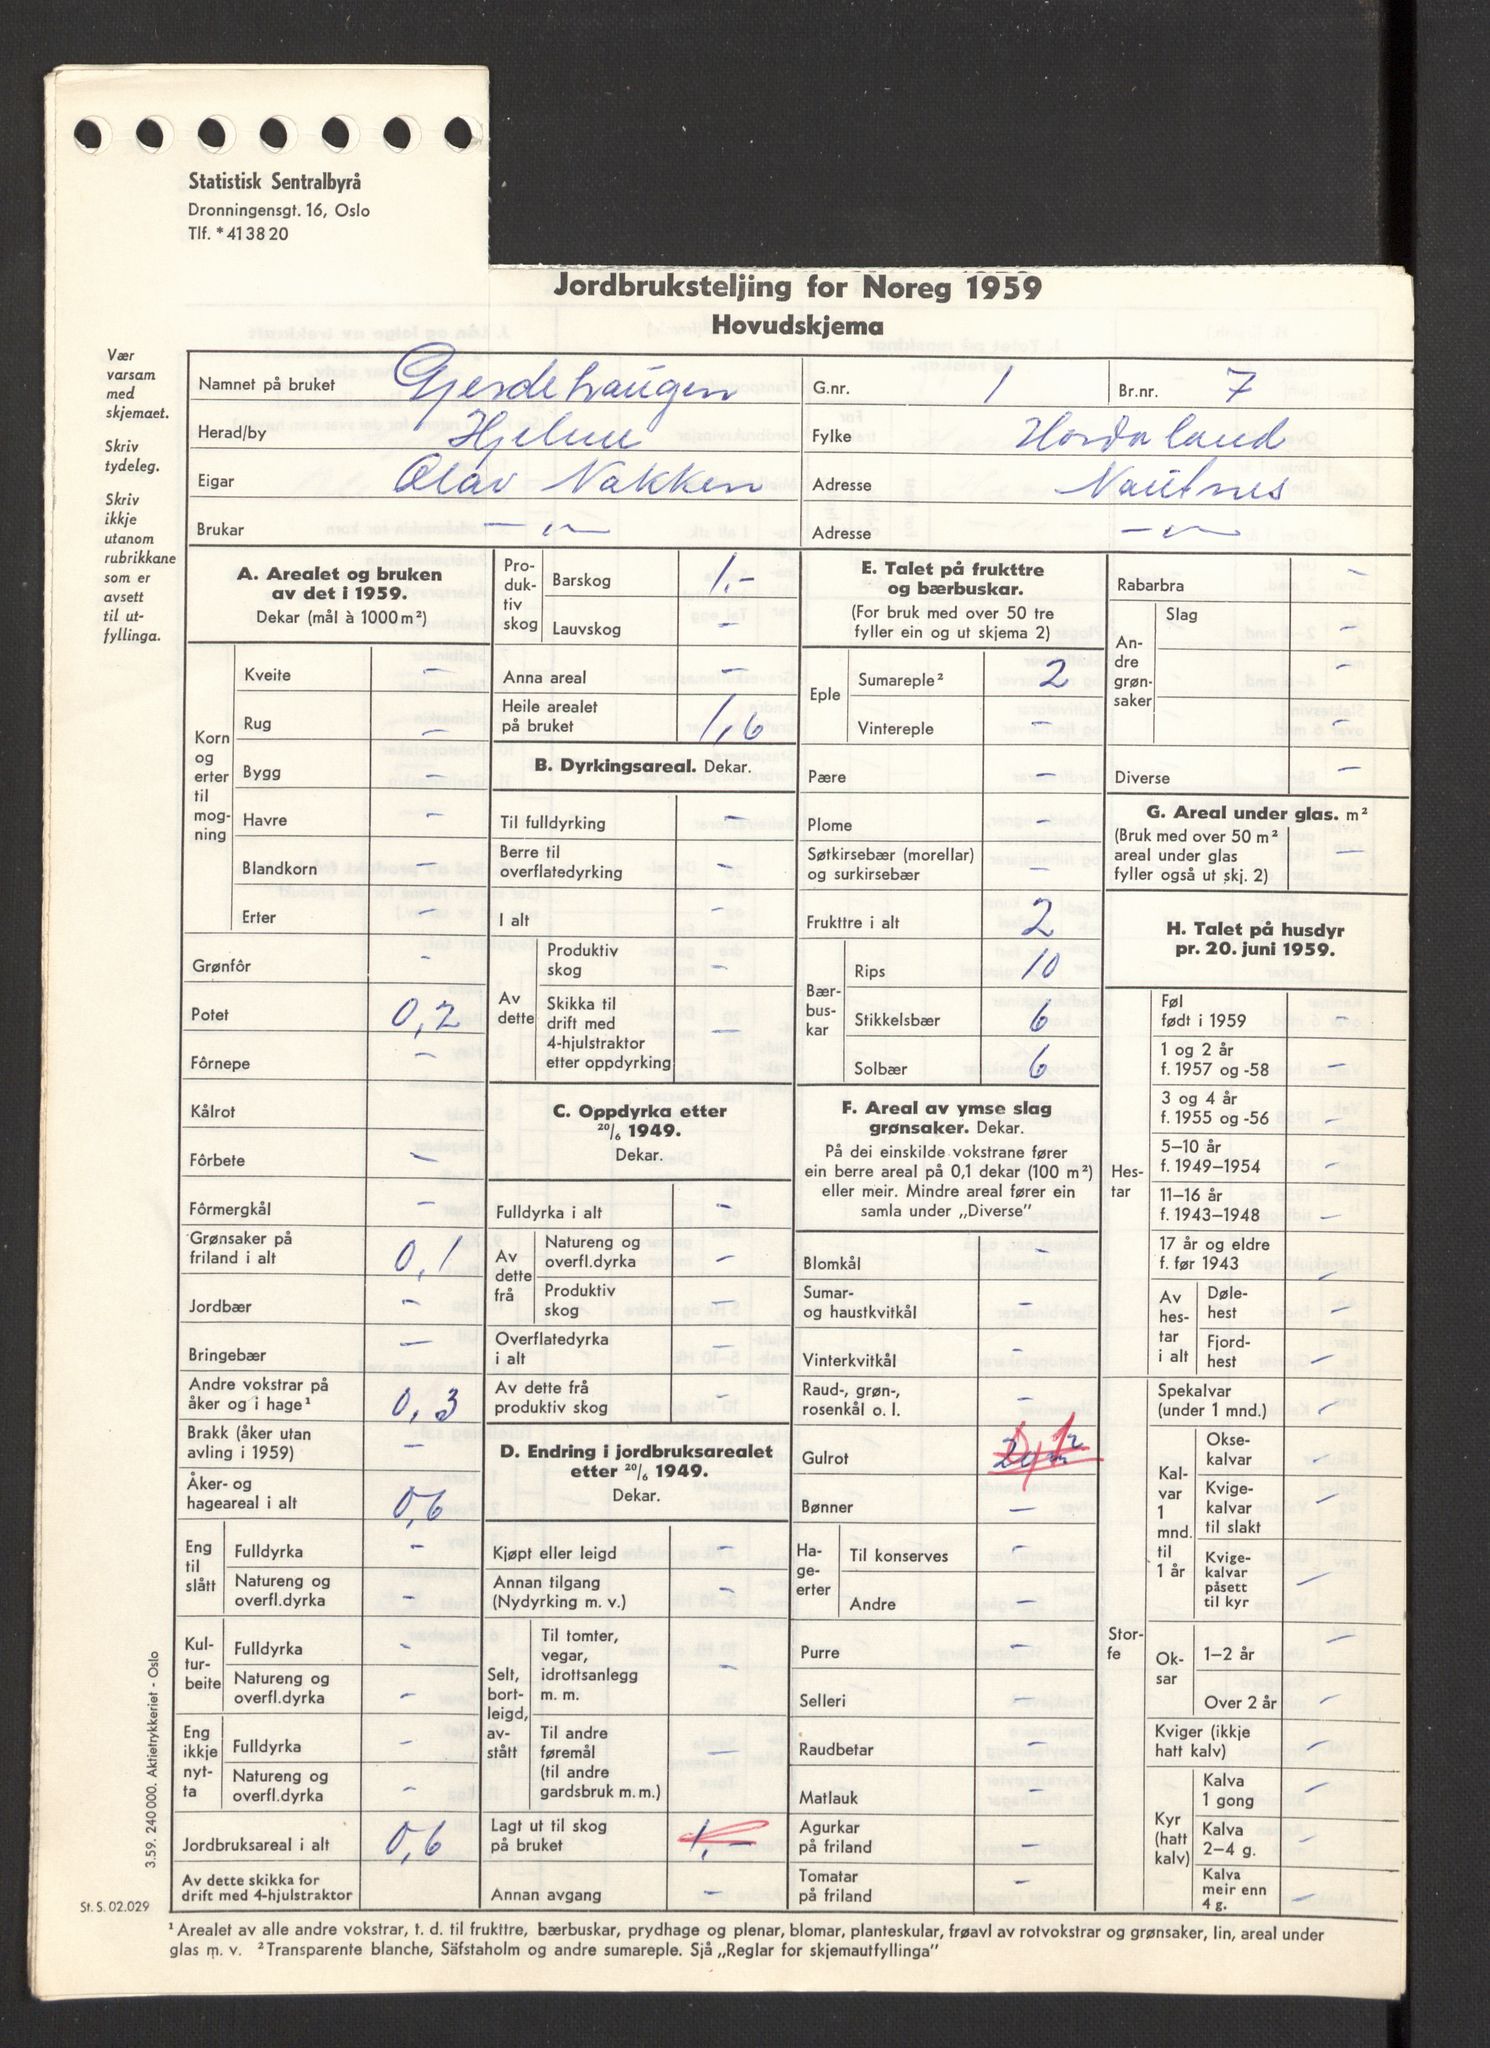 Statistisk Sentralbyrå
Dronningensgt. 16, Oslo
Tlf. *41 38 20
Jordbruksteljing for Noreg 1959
Hovudskjema
Vær
varsam
med
skjemaet.
Skriv
tydeleg.
Skriv
ikkje
utanom
rubrikkane
som er
avsett
til ut-
fyllinga.
Namnet på bruket Gjerdehaugen G.nr. 1 Br.nr. 7
Herad/by Hjelme Fylke Hordaland
Eigar Olav Nakken Adresse Nautnes
Brukar — " — Adresse — " —
A. Arealet og bruken
av det i 1959.
Dekar (mål à 1000 m²)
Korn
og
erter
til
mog-
ning
Kveite –
Rug –
Bygg –
Havre –
Blandkorn –
Erter –
Grønfôr –
Potet 0,2
Fôrnepe –
Kålrot
Fôrbete –
Fôrmergkål –
Grønsaker på
friland i alt 0,1
Jordbær –
Bringebær –
Andre vokstrar på
åker og i hage¹ 0,3
Brakk (åker utan
avling i 1959) –
Åker- og
hageareal i alt 0,6
Eng
til
slått
Fulldyrka –
Natureng og
overfl.dyrka –
Kul-
tur-
beite
Fulldyrka –
Natureng og
overfl.dyrka –
Eng
ikkje
nyt-
ta
Fulldyrka –
Natureng og
overfl.dyrka –
Jordbruksareal i alt 0,6
Av dette skikka for
drift med 4-hjulstraktor
Pro-
duk-
tiv
skog
Barskog 1,-
Lauvskog –
Anna areal –
Heile arealet
på bruket 1,6
B. Dyrkingsareal. Dekar.
Til fulldyrking –
Berre til
overflatedyrking –
I alt –
Av
dette
Produktiv
skog –
Skikka til
drift med
4-hjulstraktor
etter oppdyrking –
C. Oppdyrka etter
20/6 1949.
Dekar.
Fulldyrka i alt –
Av
dette
frå
Natureng og
overfl.dyrka –
Produktiv
skog –
Overflatedyrka
i alt –
Av dette frå
produktiv skog –
D. Endring i jordbruksarealet
etter 20/6 1949.
Dekar.
Kjøpt eller leigd –
Annan tilgang
(Nydyrking m. v.) –
Selt,
bort-
leigd,
av-
stått
Til tomter,
vegar,
idrottsanlegg
m. m. –
Til andre
føremål
(til andre
gardsbruk m. m.) –
Lagt ut til skog
på bruket 1,-
Annan avgang –
E. Talet på frukttre
og bærbuskar.
(For bruk med over 50 tre
fyller ein og ut skjema 2)
Eple
Sumareple² 2
Vintereple –
Pære –
Plome –
Søtkirsebær (morellar)
og surkirsebær –
Frukttre i alt 2
Bær-
bus-
kar
Rips 10
Stikkelsbær 6
Solbær 6
F. Areal av ymse slag
grønsaker. Dekar.
På dei einskilde vokstrane fører
ein berre areal på 0,1 dekar (100 m²)
eller meir. Mindre areal fører ein
samla under „Diverse”
Blomkål –
Sumar-
og haustkvitkål –
Vinterkvitkål –
Raud-, grøn-,
rosenkål o. l. –
Gulrot
Bønner –
Ha-
ge-
erter
Til konserves –
Andre –
Purre –
Selleri –
Raudbetar –
Matlauk –
Agurkar
på friland –
Tomatar
på friland –
Rabarbra –
An-
dre
grøn-
saker
Slag –
–
–
Diverse –
G. Areal under glas. m²
(Bruk med over 50 m²
areal under glas
fyller også ut skj. 2) –
H. Talet på husdyr
pr. 20. juni 1959.
Hes-
tar
Føl
født i 1959 –
1 og 2 år
f. 1957 og -58 –
3 og 4 år
f. 1955 og -56 –
5–10 år
f. 1949–1954 –
11–16 år
f. 1943–1948 –
17 år og eldre
f. før 1943 –
Av
hes-
tar
i alt
Døle-
hest –
Fjord-
hest –
Stor-
fe
Spekalvar
(under 1 mnd.) –
Kal-
var
1
mnd.
til
1 år
Okse-
kalvar –
Kvige-
kalvar
til slakt –
Kvige-
kalvar
påsett
til kyr –
Ok-
sar
1–2 år –
Over 2 år –
Kviger (ikkje
hatt kalv) –
Kyr
(hatt
kalv)
Kalva
1 gong –
Kalva
2–4 g. –
Kalva
meir enn
4 g. –
3.59. 240 000. Aktietrykkeriet - Oslo
St. S. 02.029
¹ Arealet av alle andre vokstrar, t. d. til frukttre, bærbuskar, prydhage og plenar, blomar, planteskular, frøavl av rotvokstrar og grønsaker, lin, areal under
glas m. v. ² Transparente blanche, Säfstaholm og andre sumareple. Sjå „Reglar for skjemautfyllinga”